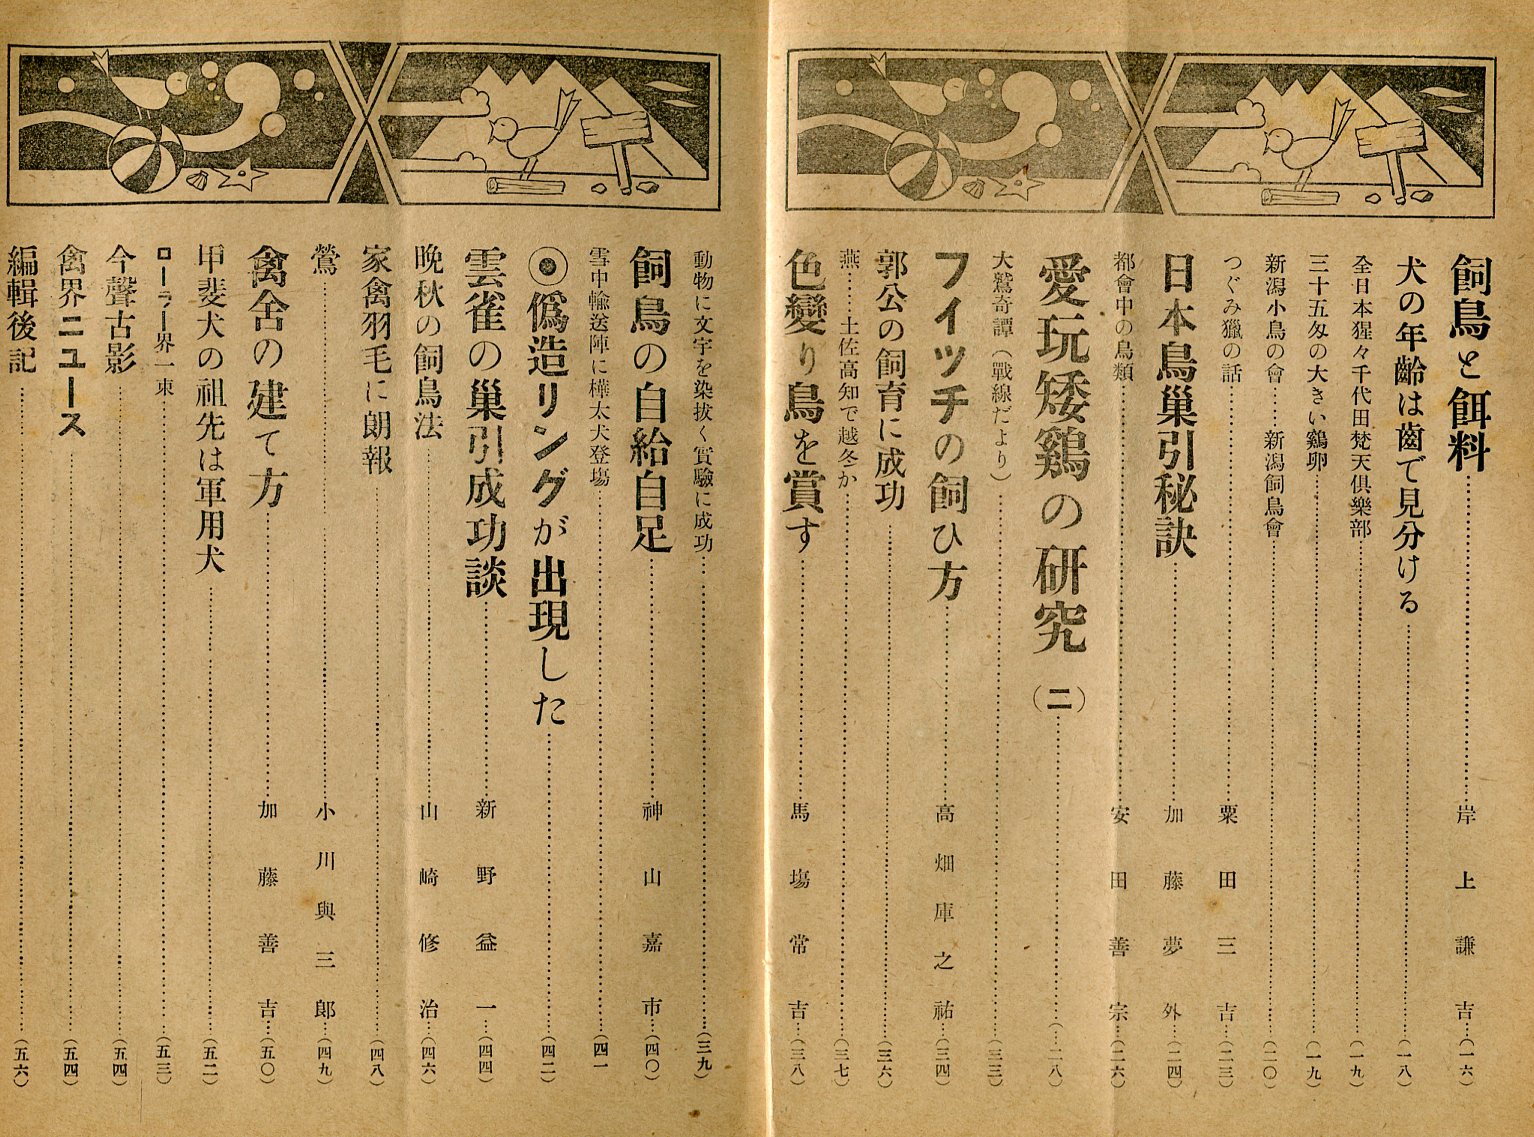 飼鳥と餌料……岸上謙吉…(一六)
犬の年齡は齒で見分ける……(一八)
全日本猩々千代田梵天倶樂部……(一九)
三十五匁の大きい鷄卵……(一九)
新潟小鳥の會……新潟飼鳥會……(二〇)
つぐみ獵の話……粟田三吉…(二三)
日本鳥巣引秘訣……加藤夢外…(二四)
都會中の鳥類……安田善宗…(二六)
愛玩矮鷄の研究(二)……(二八)
大鷲奇譚(戰線だより)……(三三)
フイツチの飼ひ方……高畑庫之祐…(三四)
郭公の飼育に成功……(三六)
燕……土佐高知で越冬か……(三七)
色變り鳥を賞す……馬塲常吉…(三八)
動物に文字を染拔く實驗に成功……(三九)
飼鳥の自給自足……神山嘉市…(四〇)
雪中輸送陣に樺太犬登塲……(四一
◉僞造リングが出現した……(四二)
雲雀の巣引成功談……新野益一…(四四)
晩秋の飼鳥法……山崎修治…(四六)
家禽羽毛に朗報……(四八)
鶯……小川與三郎…(四九)
禽舎の建て方……加藤善吉…(五〇)
甲斐犬の祖先は軍用犬……(五二)
ローラー界一束……(五三)
今聲古影……(五四)
禽界ニユース……(五四)
編輯後記……(五六)